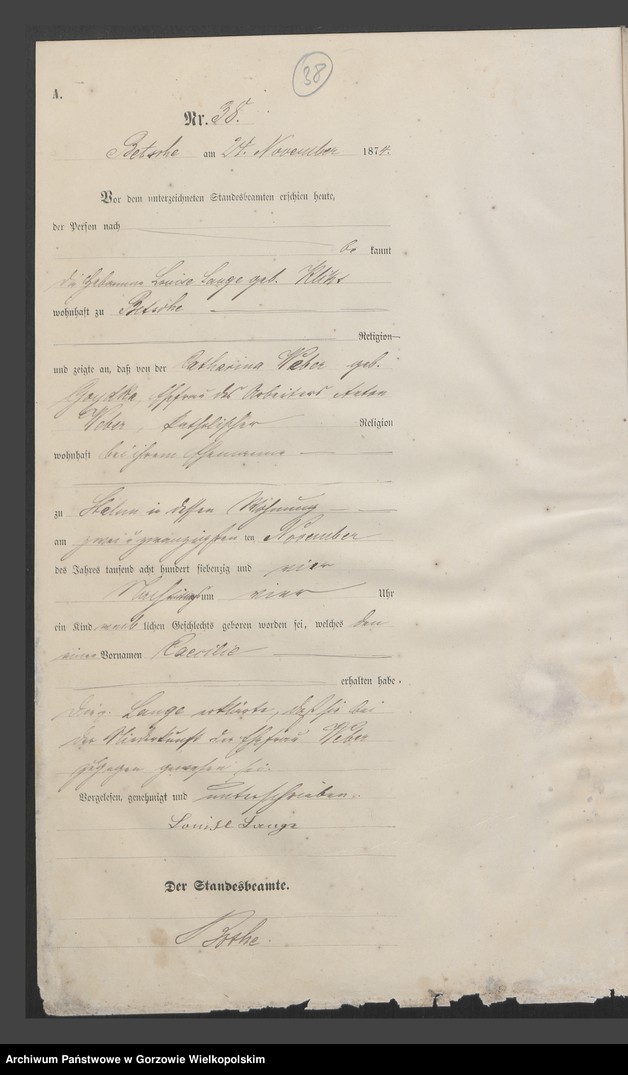 38
A.
Nr. 38.
Betsche am 24. November 1874.
Vor dem unterzeichneten Standesbeamten erschien heute,
der Person nach
be kannt
die Hebamme Louise Lange geb.
wohnhaft zu Betsche
Religion
und zeigte an, daß von der Catharina Weber geb.
Ehefrau des Arbeiters Anton
Weber, katholischer Religion
wohnhaft bei ihrem Ehemanne
zu in dessen Wohnung
am zwei u zwanzigsten ten November
des Jahres tausend acht hundert siebenzig und vier
Nachmittags um vier Uhr
ein Kind weib lichen Geschlechts geboren worden sei, welches den
einen Vornamen Caecilie
erhalten habe.
Lange erklärte, daß sie bei
der Niederkunft der Ehefrau Weber
zugegen gewesen sei.
Vorgelesen, genehmigt und unterschrieben.
Louise Lange
Der Standesbeamte.
Bothe.
Archiwum Państwowe w Gorzowie Wielkopolskim